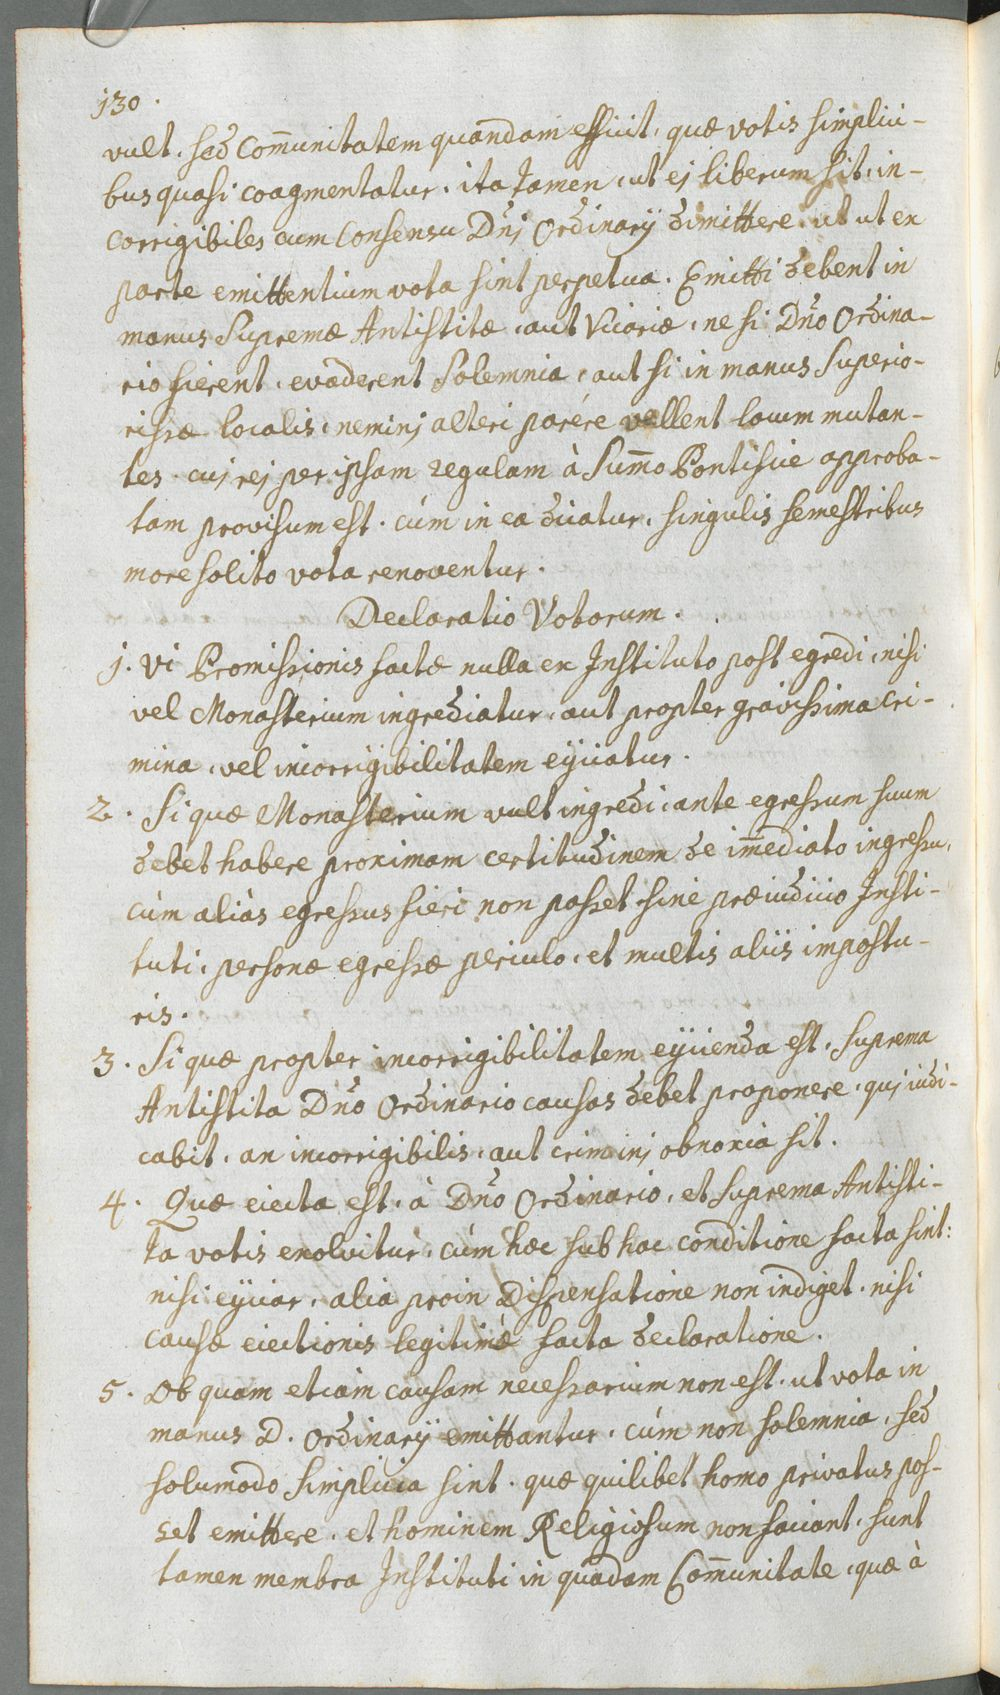 130.
vult. sed Com̄unitatem quandam efficit, quæ votis simplici-
bus quasi coagmentatur, ita tamen, ut ej liberum sit, in-
corrigibiles cum Consensu Dn̄j Ordinarÿ dimittere, ut ut ex
parte emittentium vota sint perpetua. Emitti debent in
manus Supremæ Antistitæ, aut Vicariæ, ne si Dn̄o Ordina-
rio fierent, evaderent Solemnia, aut si in manus Superio-
rissæ localis, neminj alteri parére vellent locum mutan-
tes. cuj rej per ipsam regulam à Sum̄o Pontifice approba-
tam provisum est. cúm in ea dicatur, singulis semestribus
more solito vota renoventur.
Declaratio Votorum.
1. Vi Promissionis factæ nulla ex Instituto post egredi, nisi
vel Monasterium ingrediatur, aut propter gravissima cri-
mina, vel incorrigibilitatem eÿciatur.
2. Si quæ Monasterium vult ingredi, ante egressum suum
debet habere proximam certitudinem de im̄ediato ingressu,
cùm aliàs egressus fieri non posset sine præiudicio Insti-
tuti, personæ egressæ periculo, et multis aliis impostu-
ris.
3. Si quæ propter incorrigibilitatem eÿcienda est, Suprema
Antistita Dn̄o Ordinario causas debet proponere, quj iudi-
cabit, an incorrigibilis, aut criminj obnoxia sit.
4. Quæ eiecta est, à Dn̄o Ordinario, et Suprema Antisti-
ta votis exolvitur, cúm hæc sub hac conditione facta sint:
nisi eÿciar, alia proin Dispensatione non indiget, nisi
causæ eiectionis legitimæ facta declaratione.
5. Ob quam etiam causam necessarium non est, ut vota in
manus D. Ordinarÿ emittantur, cúm non solemnia, sed
solumodo simplicia sint, quæ quilibet homo privatus pos-
set emittere, et hominem Religiosum non faciant, sunt
tamen membra Instituti in quadam Com̄unitate, quæ à